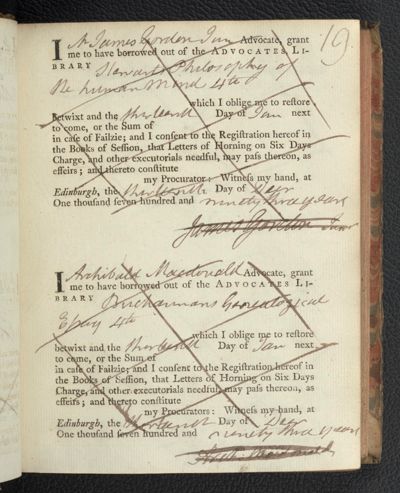 19
I Mr James Gordon Junr Advocate, grant
me to have borrowed out of the ADVOCATES LI-
BRARY Stewarts Philosophy of
the human Mind 4to
which I oblige me to restore
betwixt and the thirteenth Day of Jan next
to come, or the Sum of
in case of Failzie; and I consent to the Registration hereof in
the Books of Session, that Letters of Horning on Six Days
Charge, and other executorials needful, may pass thereon, as
effeirs; and thereto constitute
my Procurators: Witness my hand, at
Edinburgh, the thirteenth Day of Decr
One thousand seven hundred and ninety three years
James Gordon Junr
I Archibald Macdonald Advocate, grant
me to have borrowed out of the ADVOCATES LI-
BRARY Buchannans Genealogical
Essay 4to
which I oblige me to restore
betwixt and the thirteenth Day of Jan next
to come, or the Sum of
in case of Failzie; and I consent to the Registration hereof in
the Books of Session, that Letters of Horning on Six Days
Charge, and other executorials needful, may pass thereon, as
effeirs; and thereto constitute
my Procurators: Witness my hand, at
Edinburgh, the thirteenth Day of Decr
One thousand seven hundred and ninety three years
Macdonald